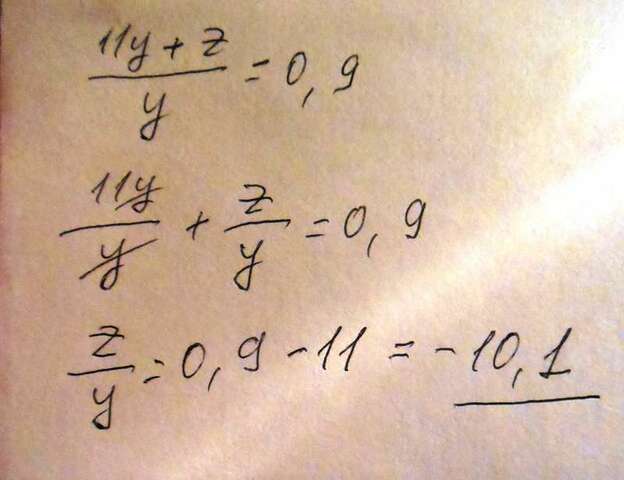 (11y + z)/y = 0,9
11y/y + z/y = 0,9
z/y = 0,9 - 11 = -10,1